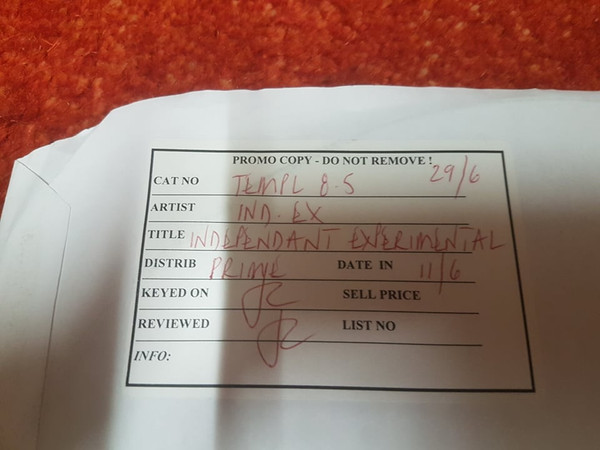 PROMO COPY - DO NOT REMOVE !
CAT NO TEMPL 8.5 29/6
ARTIST IND. EX
TITLE INDEPENDANT EXPERIMENTAL
DISTRIB PRIME DATE IN 11/6
KEYED ON SELL PRICE
REVIEWED LIST NO
INFO: